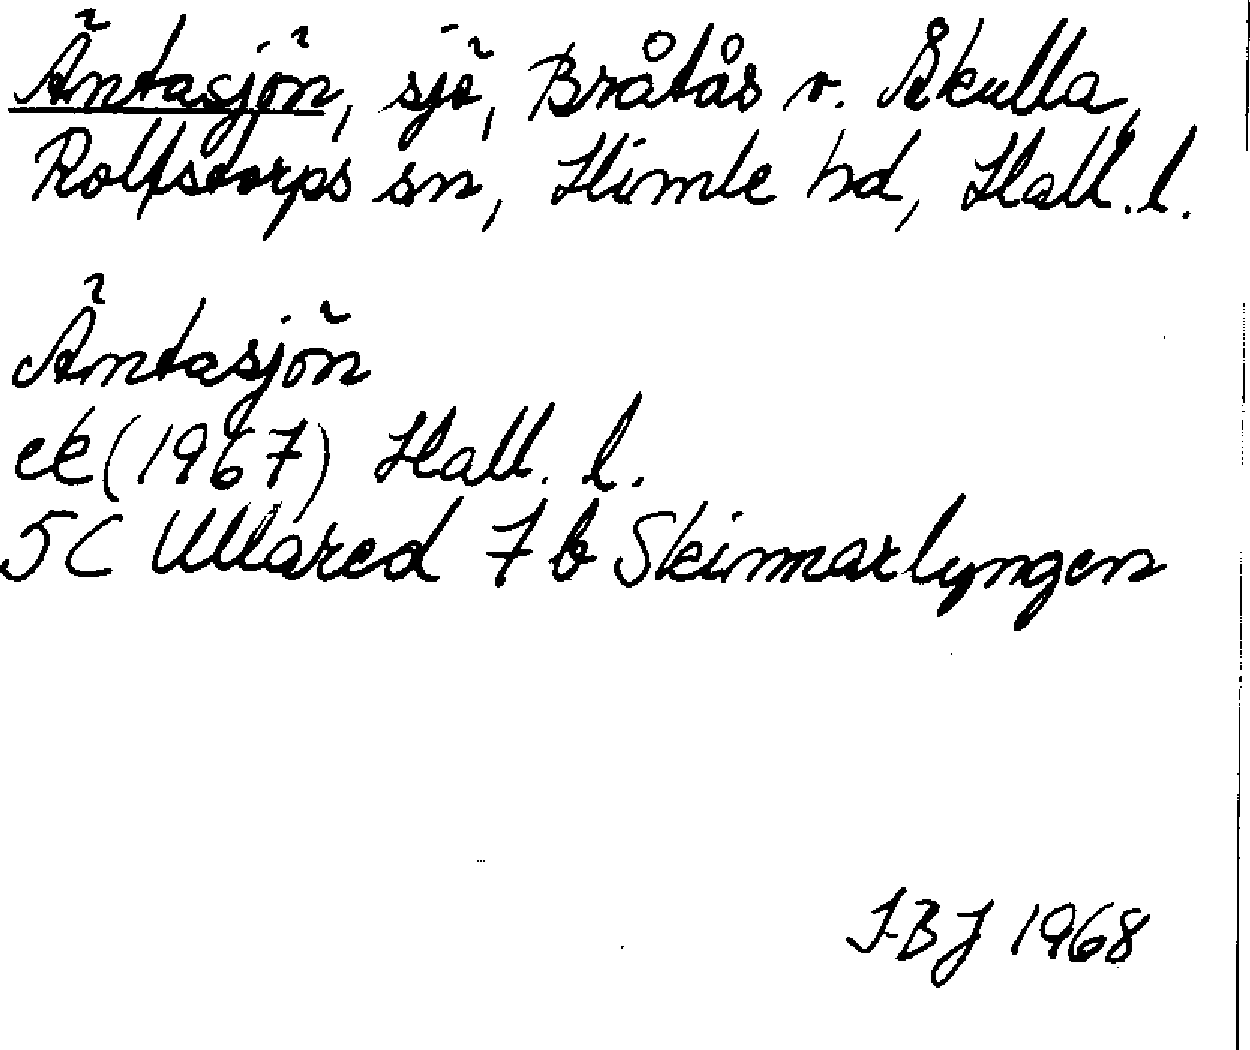 Äntasjön, sjö, Bråtås v. Åkulla,
Rolfstorps sn, Himle hd, Hall. l.
Äntasjön
ek (1967) Hall. l.
5C Ullared 7 b Skinnarlyngen
IBJ 1968